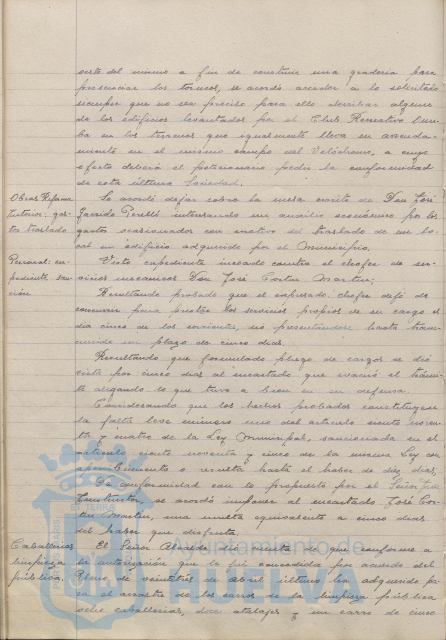 oeste del mismo a fin de construir una gradería para
presenciar los toreos, se acordó acceder a lo solicitado
siempre que no sea preciso para ello derribar alguno
de los edificios levantados por el Club Recreativo
en los terrenos que igualmente lleva en arrenda-
miento en el mismo campo del Velódromo, a cuyo
efecto deberá el peticionario pedir la conformidad
de esta última Sociedad.
Obras Reforma
Interior: gas-
tos traslado
Se acordó dejar sobre la mesa escrito de Don José
Garrido Perelló interesando un auxilio económico por los
gastos ocasionados con motivo del traslado de un lo-
cal en edificio adquirido por el Municipio.
Personal: ex-
pediente san-
ción
Visto expediente incoado contra el chofer de ser-
vicios mecánicos Don José Martín;
Resultando probado que el expresado chofer dejó de
concurrir para prestar los servicios propios de su cargo el
día cinco de los corrientes, no presentándose hasta trans-
currido un plazo de cinco días.
Resultando que formulado pliego de cargos se dió
vista por cinco días al encartado que evacuó el trámi-
te alegando lo que tuvo a bien en su defensa.
Considerando que los hechos probados constituyen
la falta leve número uno del artículo ciento noven-
ta y cuatro de la Ley Municipal, sancionada en el
artículo ciento noventa y cinco de la misma Ley con
apercibimiento o multa hasta el haber de diez días;
De conformidad con lo propuesto por el Señor Juez
Instructor, se acordó imponer al encartado José
Martín, una multa equivalente a cinco días
del haber que disfruta.
Caballerías
limpieza
pública.
El Señor Alcalde dió cuenta de que conforme a
la autorización que le fué concedida por acuerdo del
Pleno de veintitrés de abril último ha adquirido pa-
ra el arrastre de los carros de la limpieza pública
ocho caballerías, doce atalajes y un carro de cinco
Ayuntamiento de
HUELVA